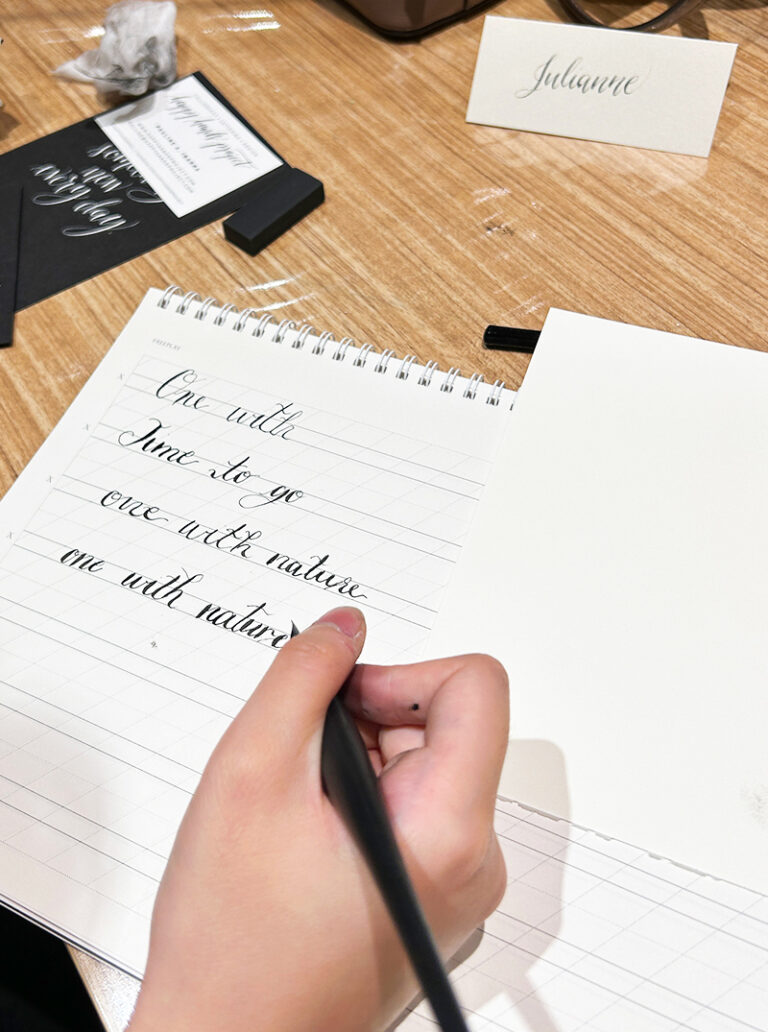 Julianne
every day
FREEPLAY
x
One with
x
Time to go
x
one with nature
x
one with nature